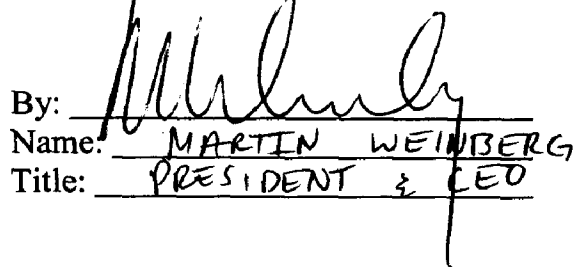 By:
Name: MARTIN WEINBERG
Title: PRESIDENT & CEO